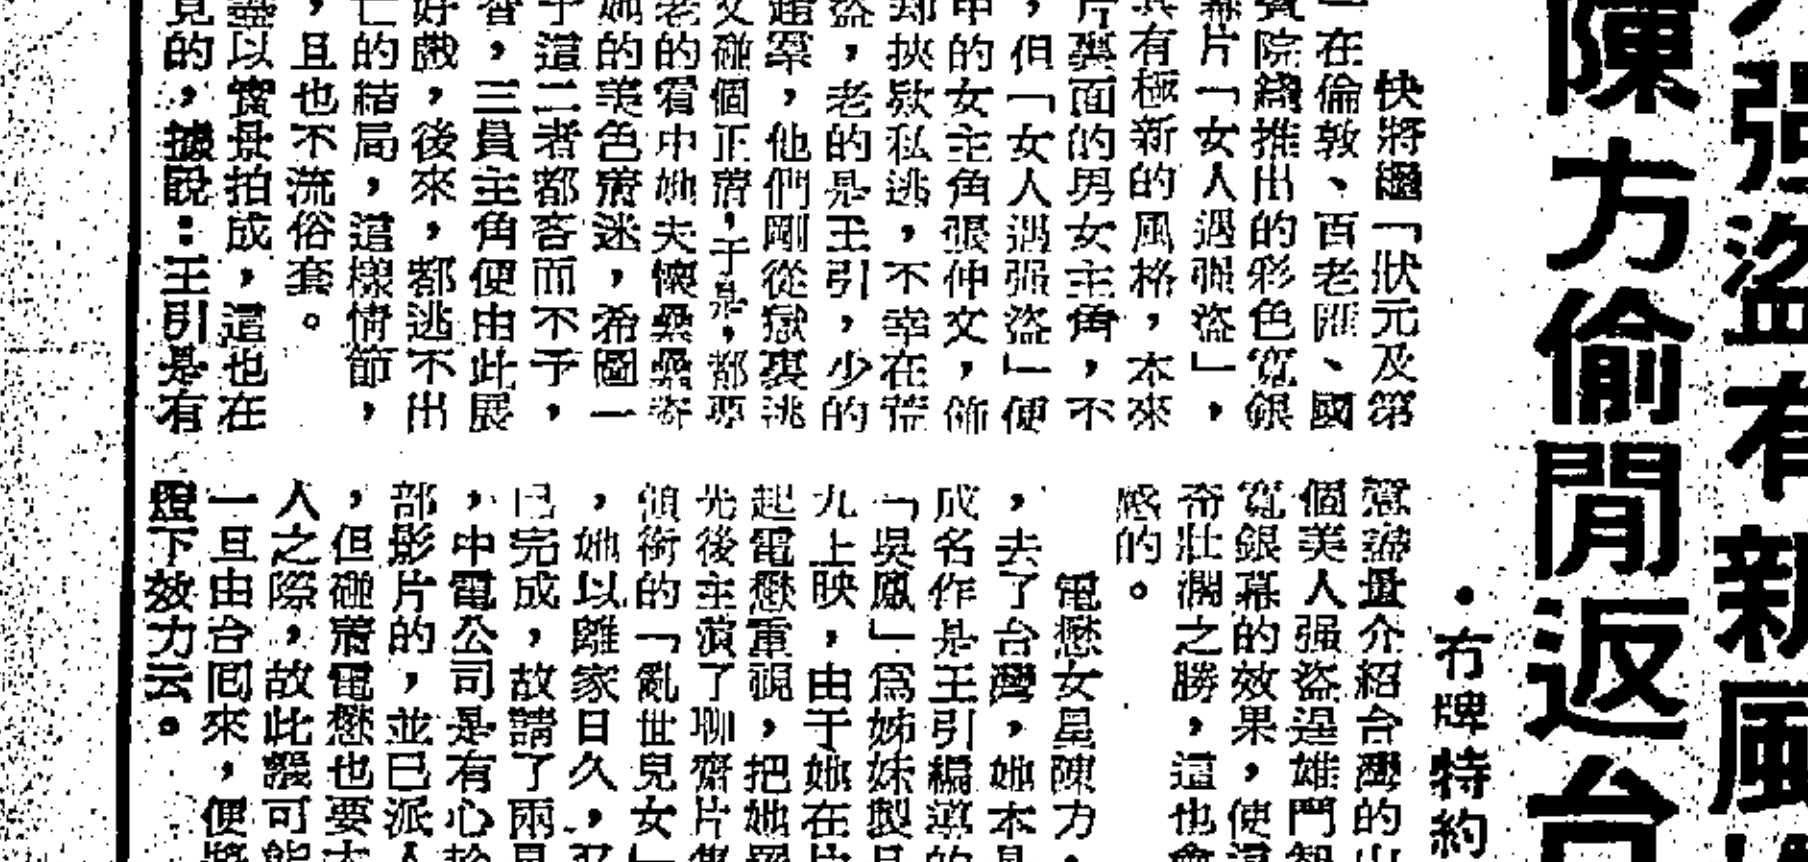 强盜有新風
陳方偷閒返台
・冇牌特約
快將繼「狀元及第
」在倫敦、百老匯、國
賓院綫推出的彩色寬銀
幕片「女人遇强盜」，
具有極新的風格，本來
片裏面的男女主角，不
，但「女人遇强盜」便
中的女主角張仲文，佈
却挾欵私逃，不幸在荒
盜，老的是王引，少的
趙羣，他們剛從獄裏逃
又碰個正着，于是，都
老的看中她夫懷纍纍
她的美色着迷，希圖一
于這二者都吝而不予，
，三員主角便由此展
好戲，後來，都逃不出
亡的結局，這樣情節，
，且也不流俗套。
以實景拍成，這也在
見的，據說：王引是有
盡量介紹台灣的山
個美人强盜逞雄鬥智
寬銀幕的效果，使這
奇壯濶之勝，這也會
感的。
電懋女星陳方，
，去了台灣，她本是
成名作是王引編導的
「吳鳳」爲姊妹製片
九上映，由于她在片
起電懋重視，把她羅
光後主演了聊齋片集
的「亂世兒女」
，她以離家日久，又
已完成，故請了兩星
，中電公司是有心於
部影片的，並已派人
，但碰着電懋也要大
人之際，故此可能
一旦由台囘來，便將
燈下效力云。